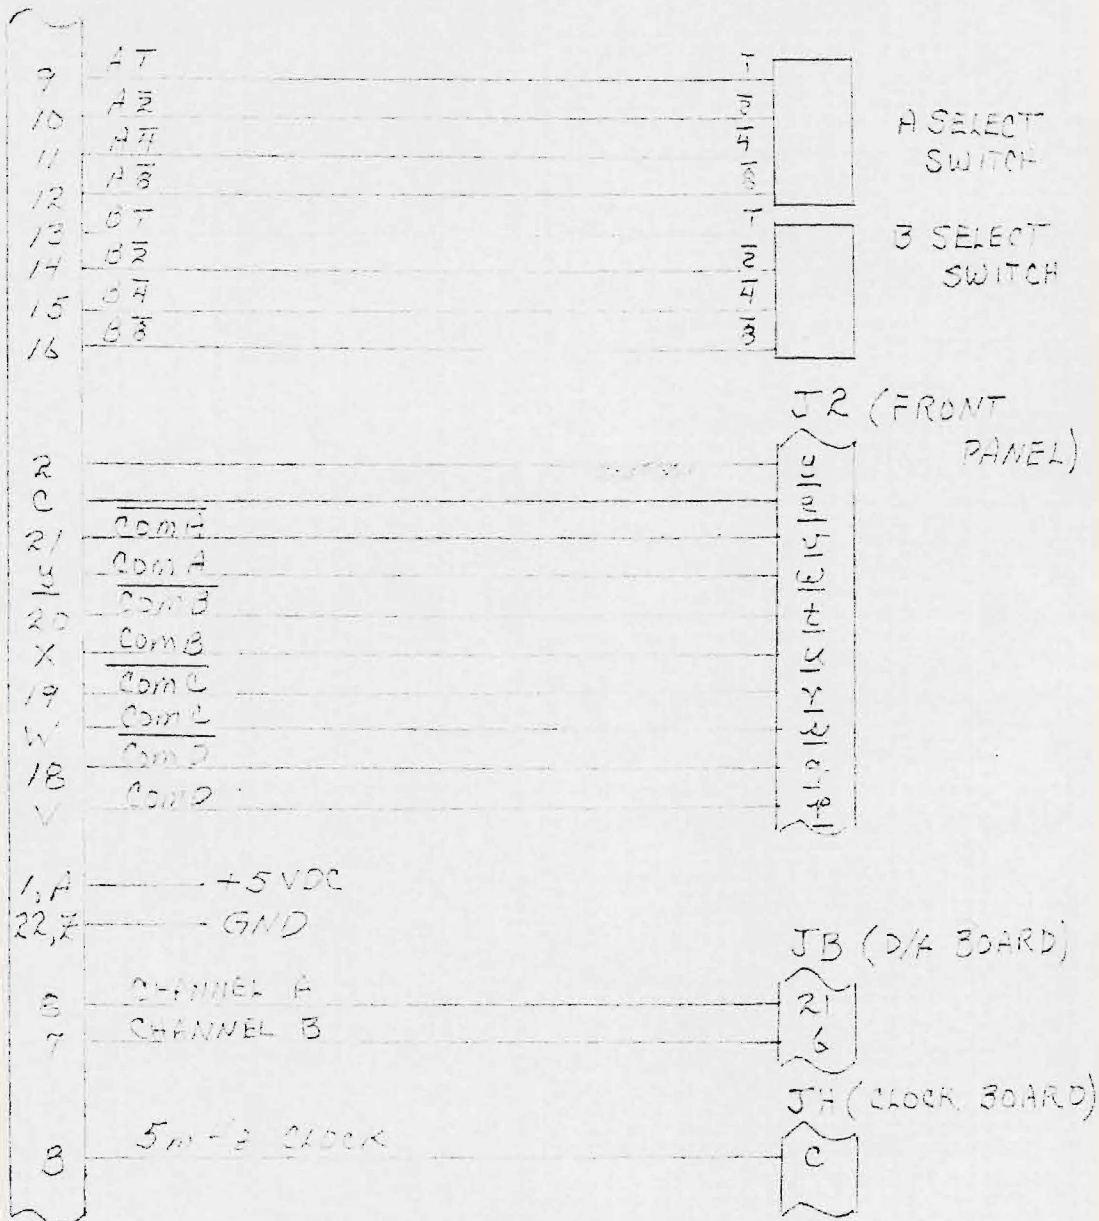 9 A1̅ 1̅
10 A2̅ 2̅
11 A4̅ 4̅
12 A8̅ 8̅
A SELECT
SWITCH
13 B1̅ 1̅
14 B2̅ 2̅
15 B4̅ 4̅
16 B8̅ 8̅
B SELECT
SWITCH
J2 (FRONT
PANEL)
2
C
21 C̅o̅m̅ ̅A̅
Com A
20 C̅o̅m̅ ̅B̅
X Com B
19 C̅o̅m̅ ̅C̅
W Com C
18 C̅o̅m̅ ̅D̅
V Com D
1, A +5 VDC
22, Z GND
JB (D/A BOARD)
CHANNEL A 21
7 CHANNEL B
JH (CLOCK BOARD)
CLOCK C